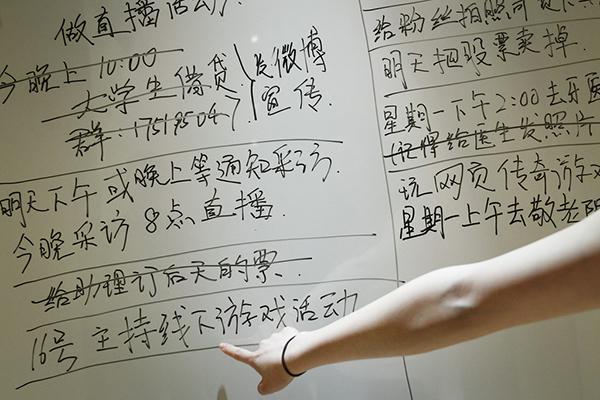 做直播活动
今晚上 10:00
大学生借贷
发微博
宣传.
群:175195047
明天下午或晚上等通知采访.
今晚采访 8点直播.
给助理订后天的票.
16号 主持线下游戏活动
给粉丝拍照
明天把股票卖掉.
星期一下午2:00去牙医
(记得给医生发照片
玩网页传奇游戏
星期一上午去敬老院